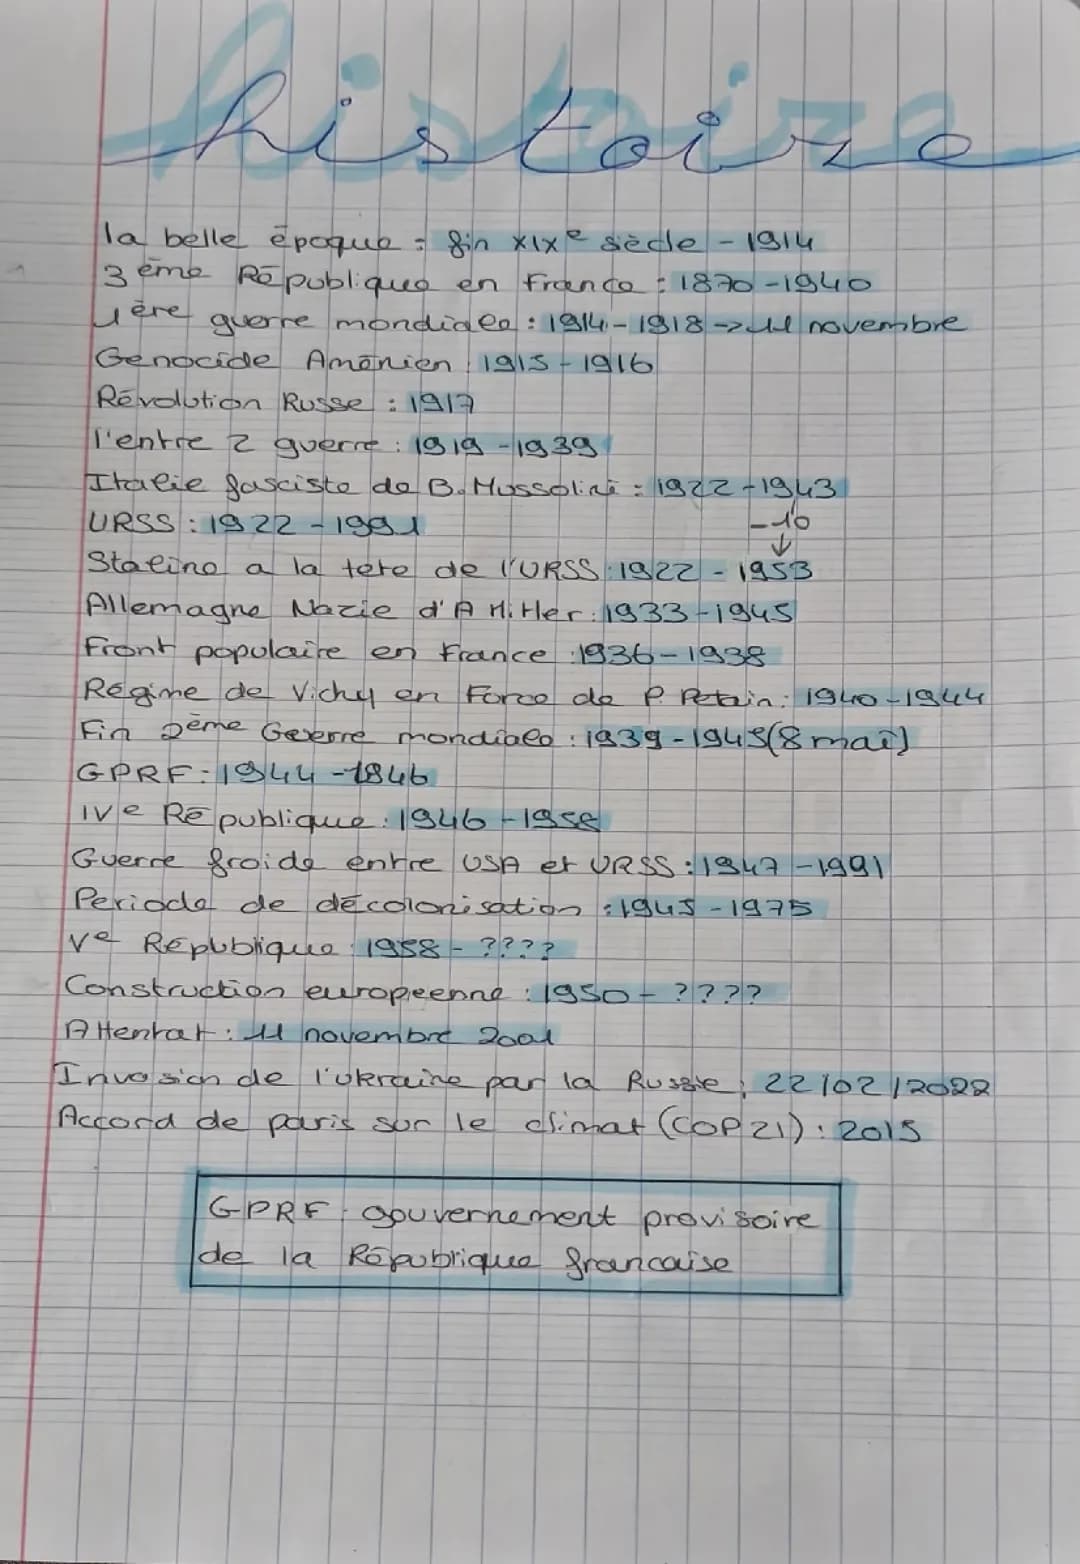 histoire
la belle époque : fin XIXe siècle - 1914
3ème République en France : 1870-1940
1ère guerre mondiale : 1914-1918 → 11 novembre
Genocide Aménien : 1915-1916
Révolution Russe : 1917
l'entre 2 guerre : 1919-1939
Italie fasciste de B. Mussolini : 1922-1943
URSS : 1922-1991
-10
↓
Staline a la tete de l'URSS : 1922-1953
Allemagne Nazie d'A Hitler : 1933-1945
Front populaire en France : 1936-1938
Régime de Vichy en Force de P. Petain : 1940-1944
Fin 2ème Geerre mondiale : 1939-1945 (8 mai)
GPRF : 1944-1846
IVe République : 1946-1958
Guerre froide entre USA et URSS : 1947-1991
Periode de décolonisation : 1945-1975
Ve République : 1958 - ????
Construction europeenne : 1950 - ????
Attentat : 11 novembre 2001
Invasion de l'ukraine par la Russie : 22/02/2022
Accord de paris sur le climat (COP21) : 2015
GPRF : gouvernement provisoire
de la République francaise